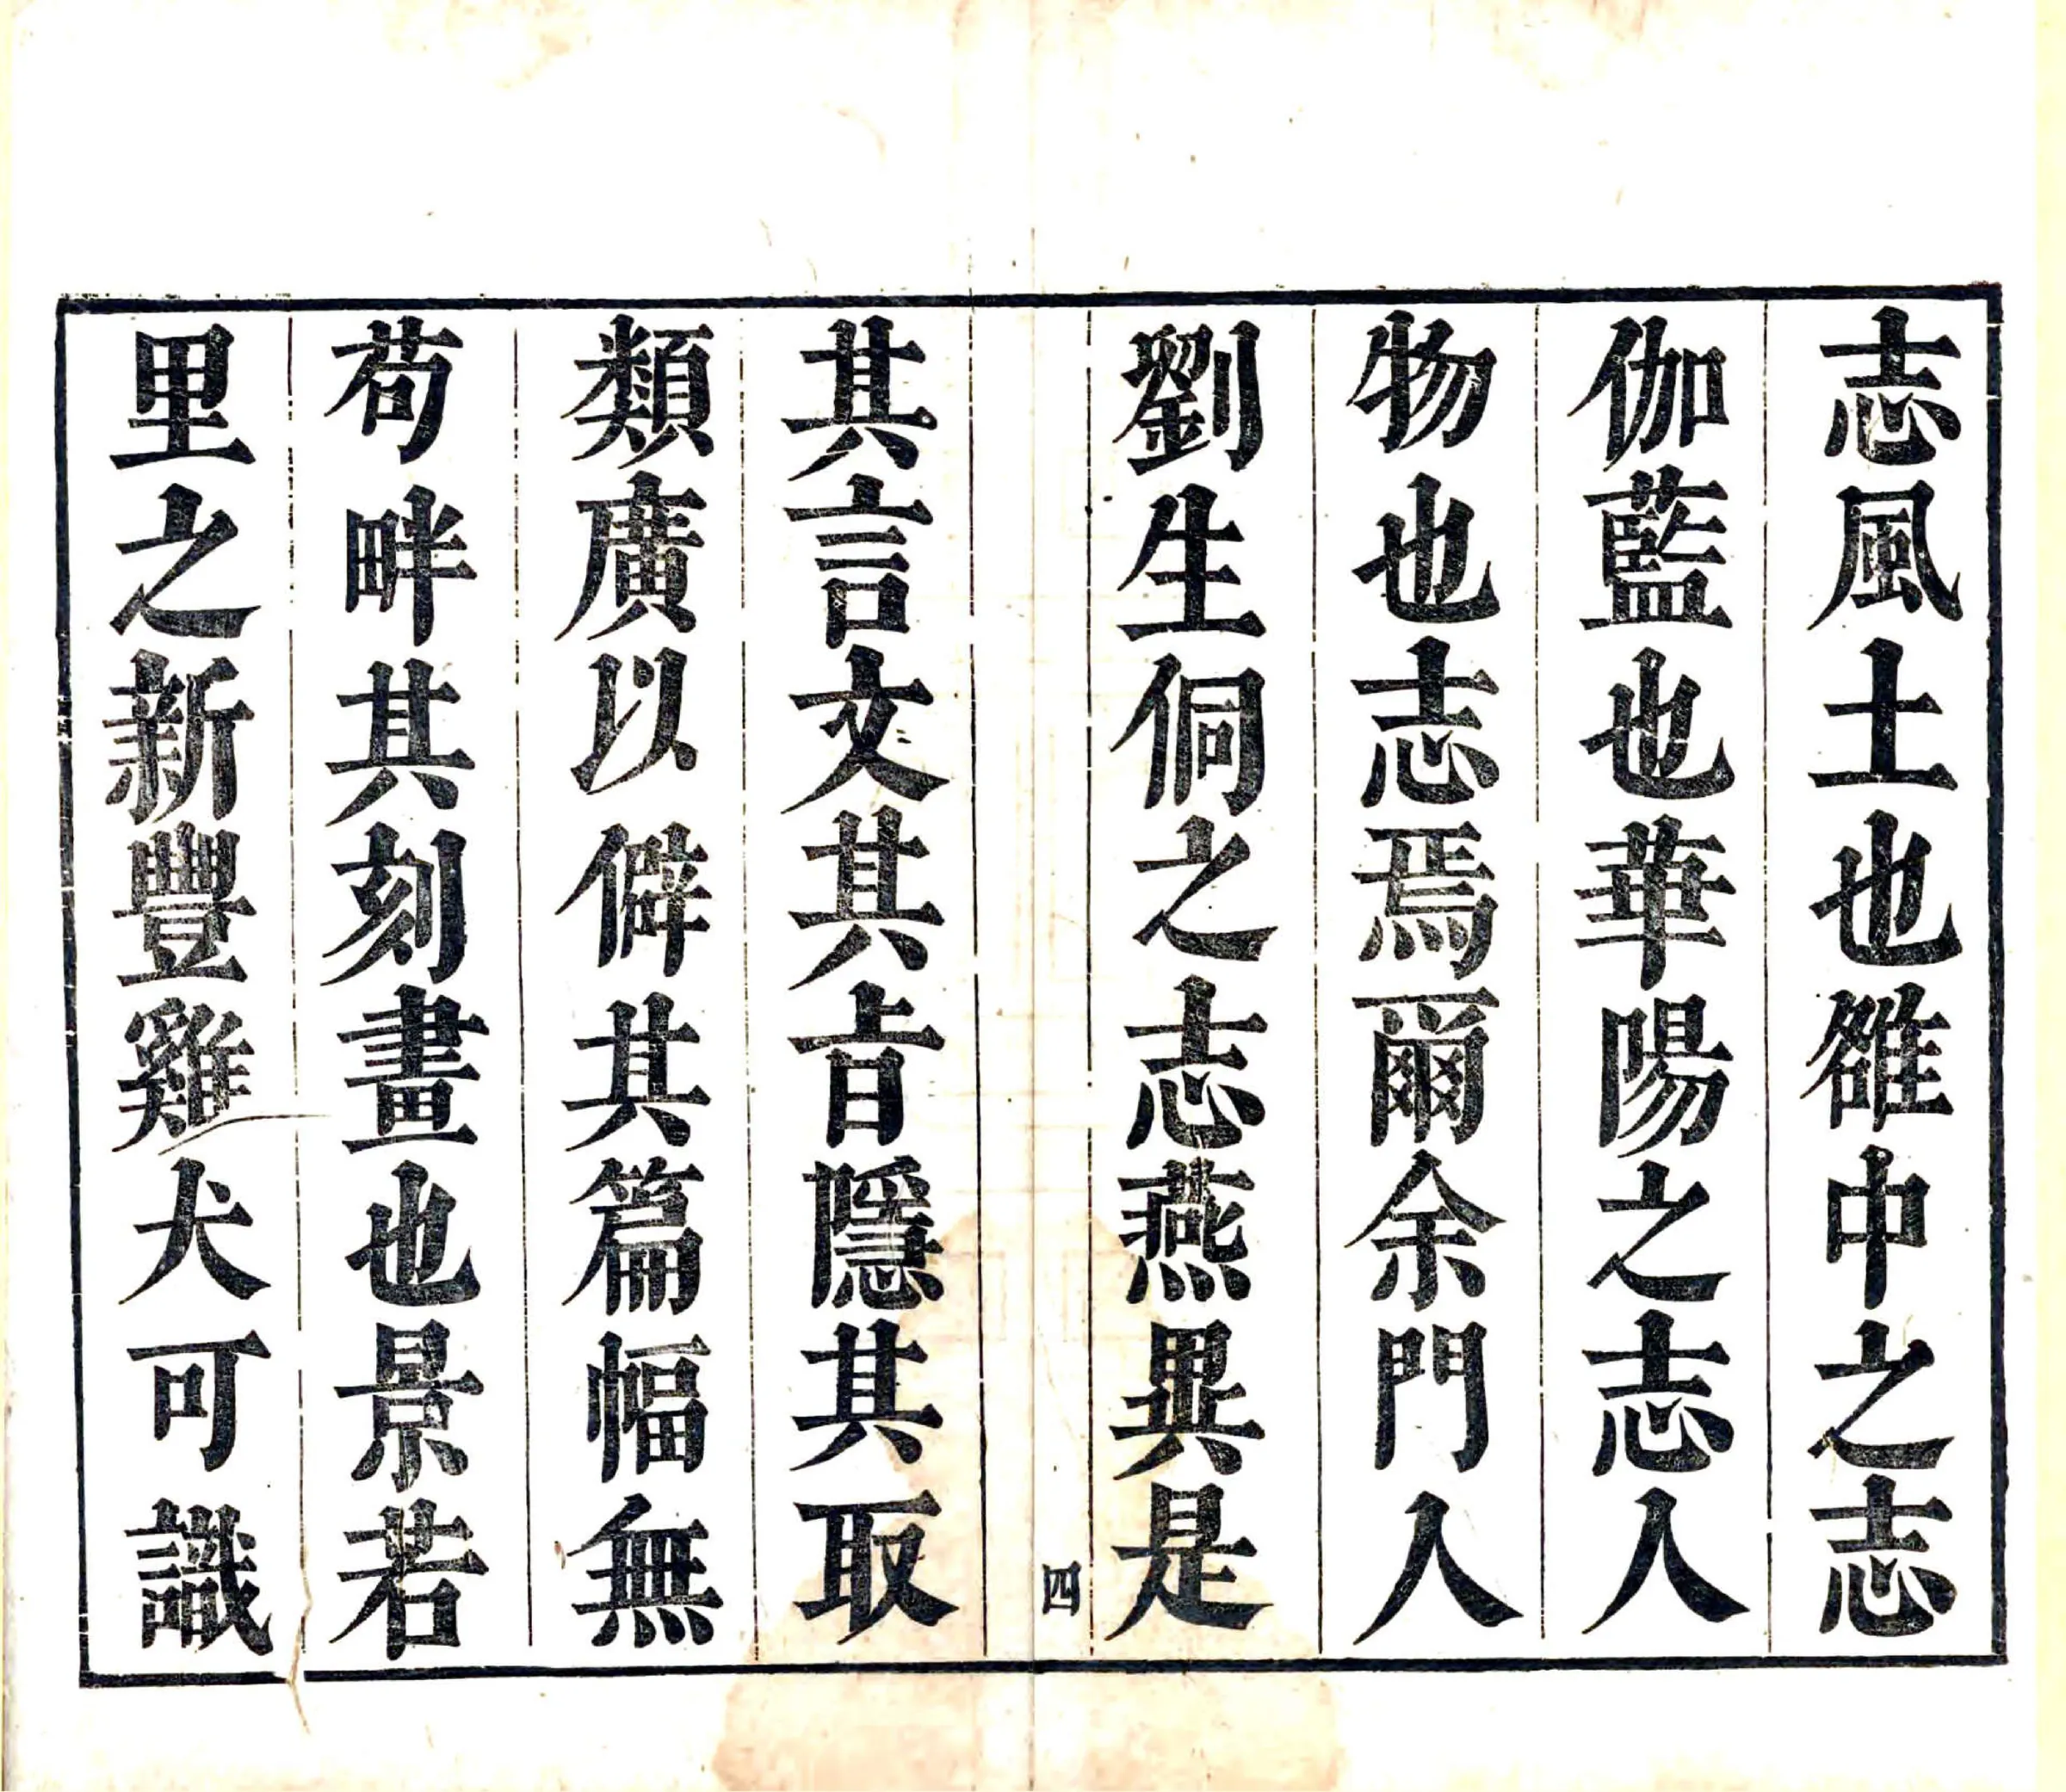 志風土也雒中之志
伽藍也華陽之志人
物也志焉爾余門人
劉生侗之志燕異是
四
其言文其旨隱其取
類廣以僻其篇幅無
苟畔其刻畫也景若
里之新豐雞犬可識